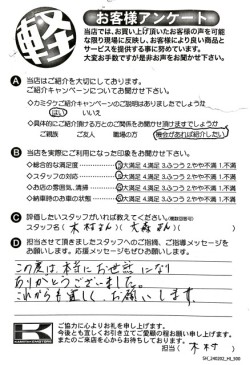 軽
お客様アンケート
当店では、お買い上げ頂いたお客様の声を可能
な限り現場に反映し、お客様により良い商品と
サービスを提供する事に努めています。
大変お手数ですが是非お声をお聞かせ下さい。
A 当店はご紹介を大切にしております。
ご紹介キャンペーンについてお聞かせ下さい。
◇カミタケご紹介キャンペーンのご説明はありましたでしょうか
はい いいえ
◇具体的にご紹介頂ける方とのご関係をお聞かせ頂けますでしょうか
ご親族 ご友人 職場の方 機会があれば紹介したい
B 当店を実際にご利用になった印象をお聞かせ下さい。
◇総合的な満足度 5.大満足 4.満足 3.ふつう 2.やや不満 1.不満
◇スタッフの対応 5.大満足 4.満足 3.ふつう 2.やや不満 1.不満
◇お店の雰囲気、清掃 5.大満足 4.満足 3.ふつう 2.やや不満 1.不満
◇納車時のお車の状態 5.大満足 4.満足 3.ふつう 2.やや不満 1.不満
C 評価したいスタッフがいれば教えてください。(複数回答可)
スタッフ名( 木村さん )( 大森さん )
D 担当させて頂きましたスタッフへのご指摘、ご指導メッセージを
お願いします。応援メッセージもぜひお願いします。
この度は、本当にお世話になり
ありがとうございました。
これからも宜しくお願いします。
ご協力に心よりお礼を申し上げます。
今後とも宜しくお引き立てご愛顧の程お願い申し上げます。
またのご来店を心からお待ちしております。
担当( 木村 )
SH_240202_HI_500